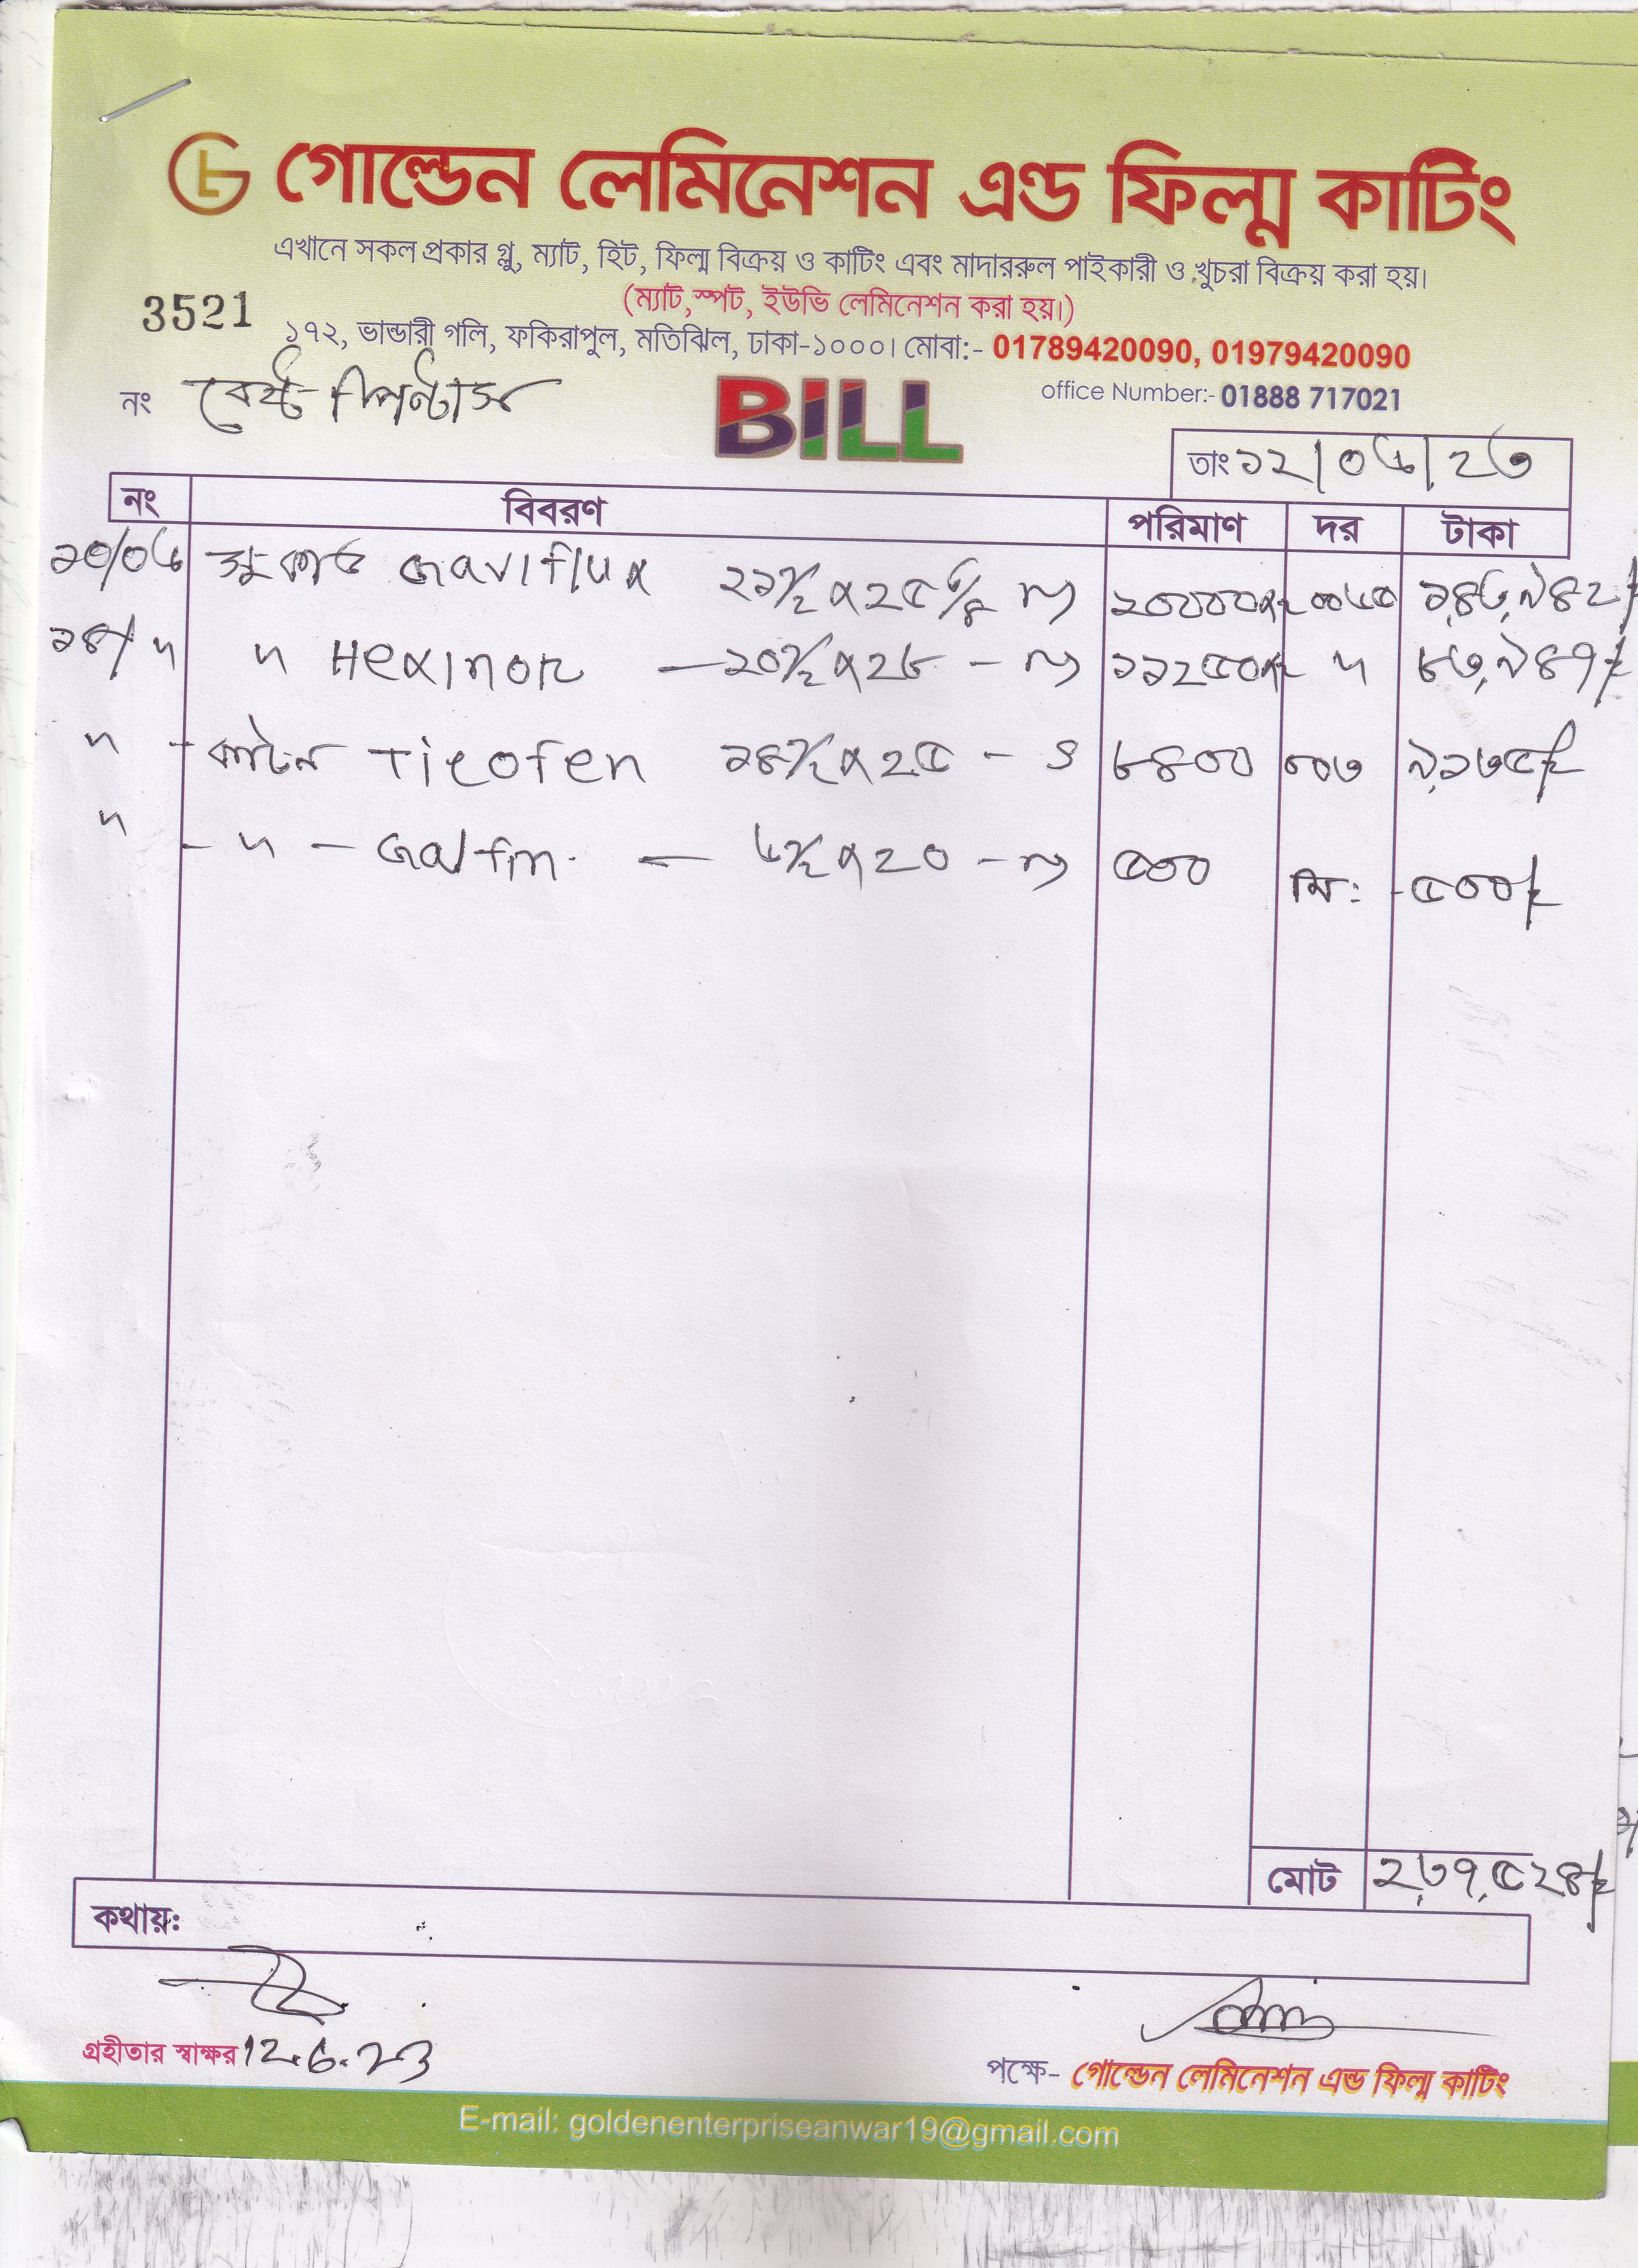 গোল্ডেন লেমিনেশন এন্ড ফিল্ম কাটিং
এখানে সকল প্রকার গ্লু, ম্যাট, হিট, ফিল্ম বিক্রয় ও কাটিং এবং মাদাররুল পাইকারী ও খুচরা বিক্রয় করা হয়।
(ম্যাট,স্পট, ইউভি লেমিনেশন করা হয়।)
3521
১৭২, ভান্ডারী গলি, ফকিরাপুল, মতিঝিল, ঢাকা-১০০০। মোবা:- 01789420090, 01979420090
office Number:- 01888 717021
নং বেষ্ট প্রিন্টার্স
BILL
তাং ১২/০৬/২৩
নং বিবরণ পরিমাণ দর টাকা
১০/০৬ Gaviflux ২১১/২ x ২৫ ২০০০০
১৪/ " " Hexinor — ২০১/২ x ২৮ - ১১২৫০ " ৮৩,৯৪৭/=
" - কার্টন Tirofen ১৪১/২ x ২৫ - S ৮৪০০ ০০৩ ৯,১৩৫/=
" - " - Galfin. — ৬১/২ x ২০ - ৫০০ মি: ৫০০/=
মোট ২,৩৭,৫২৪/=
কথায়:
গ্রহীতার স্বাক্ষর 12.6.23
পক্ষে- গোল্ডেন লেমিনেশন এন্ড ফিল্ম কাটিং
E-mail: goldenenterpriseanwar19@gmail.com